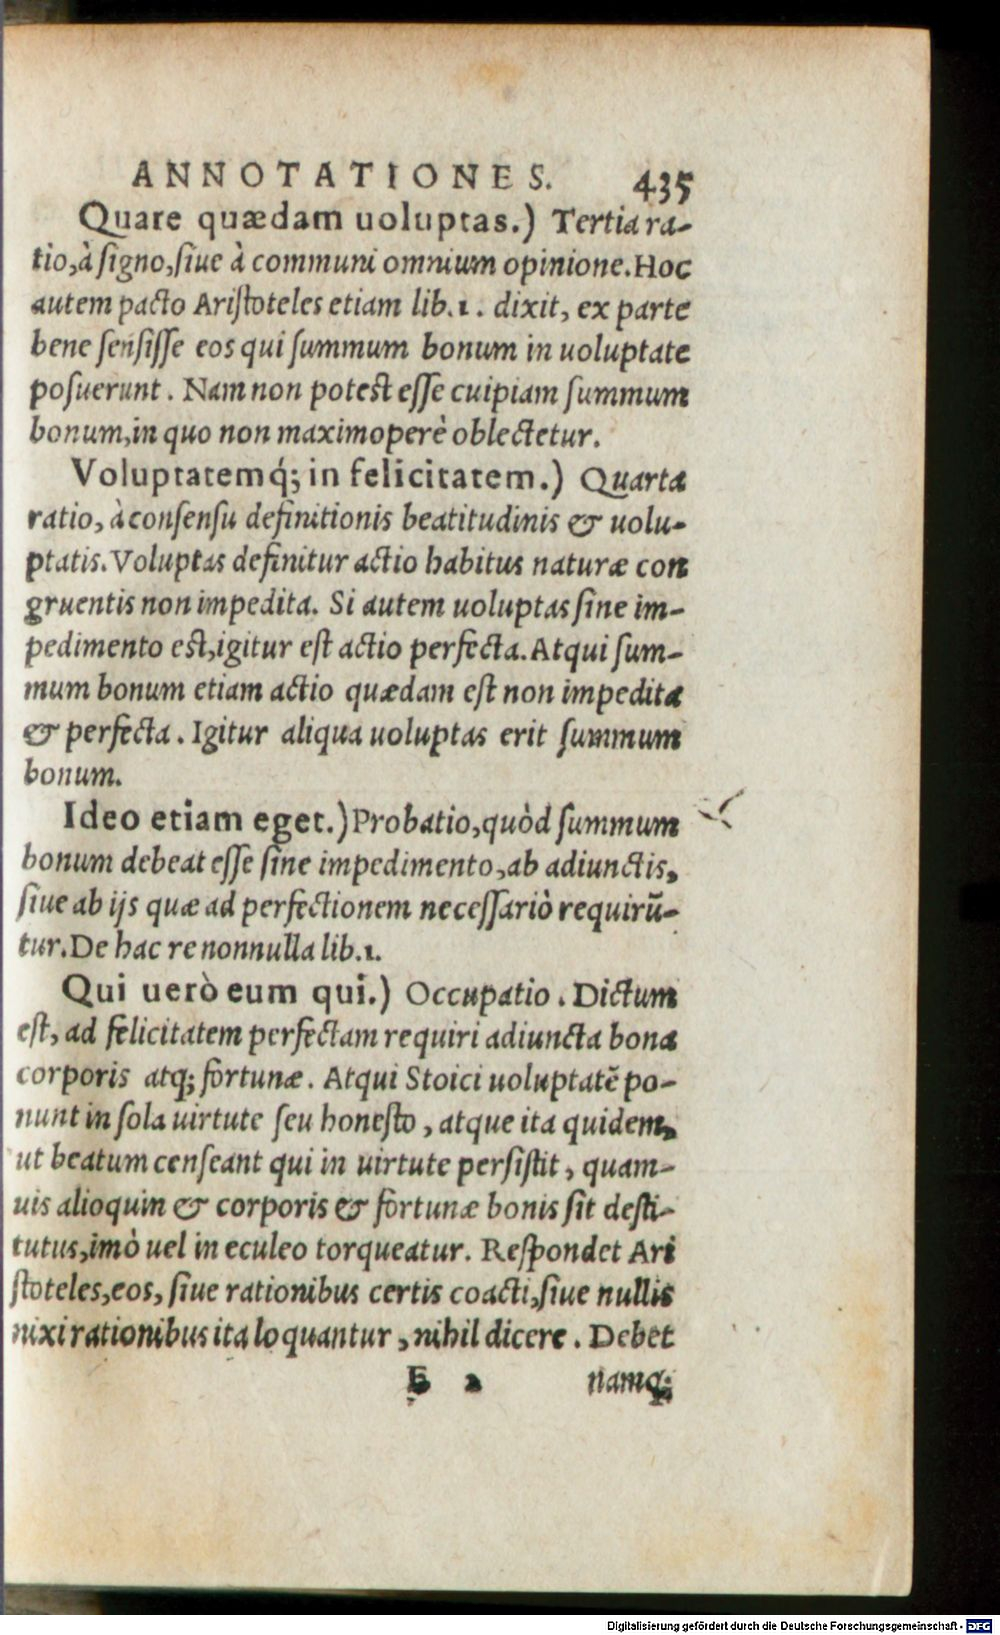 ANNOTATIONES. 435
Quare quædam uoluptas.) Tertia ra-
tio, à signo, siue à communi omnium opinione. Hoc
autem pacto Aristoteles etiam lib. 1. dixit, ex parte
bene sensisse eos qui summum bonum in uoluptate
posuerunt. Nam non potest esse cuipiam summum
bonum, in quo non maximoperè oblectetur.
Voluptatemq́; in felicitatem.) Quarta
ratio, à consensu definitionis beatitudinis & uolu-
ptatis. Voluptas definitur actio habitus naturæ con
gruentis non impedita. Si autem uoluptas sine im-
pedimento est, igitur est actio perfecta. Atqui sum-
mum bonum etiam actio quædam est non impedita
& perfecta. Igitur aliqua uoluptas erit summum
bonum.
Ideo etiam eget.) Probatio, quòd summum
bonum debeat esse sine impedimento, ab adiunctis,
siue ab ijs quæ ad perfectionem necessariò requirũ-
tur. De hac re nonnulla lib. 1.
Qui uerò eum qui.) Occupatio. Dictum
est, ad felicitatem perfectam requiri adiuncta bona
corporis atq; fortunæ. Atqui Stoici uoluptatẽ po-
nunt in sola uirtute seu honesto, atque ita quidem,
ut beatum censeant qui in uirtute persistit, quam-
uis alioquin & corporis & fortunæ bonis sit desti-
tutus, imò uel in eculeo torqueatur. Respondet Ari
stoteles, eos, siue rationibus certis coacti, siue nullis
nixi rationibus ita loquantur, nihil dicere. Debet
E 2 namq;
Digitalisierung gefördert durch die Deutsche Forschungsgemeinschaft - DFG